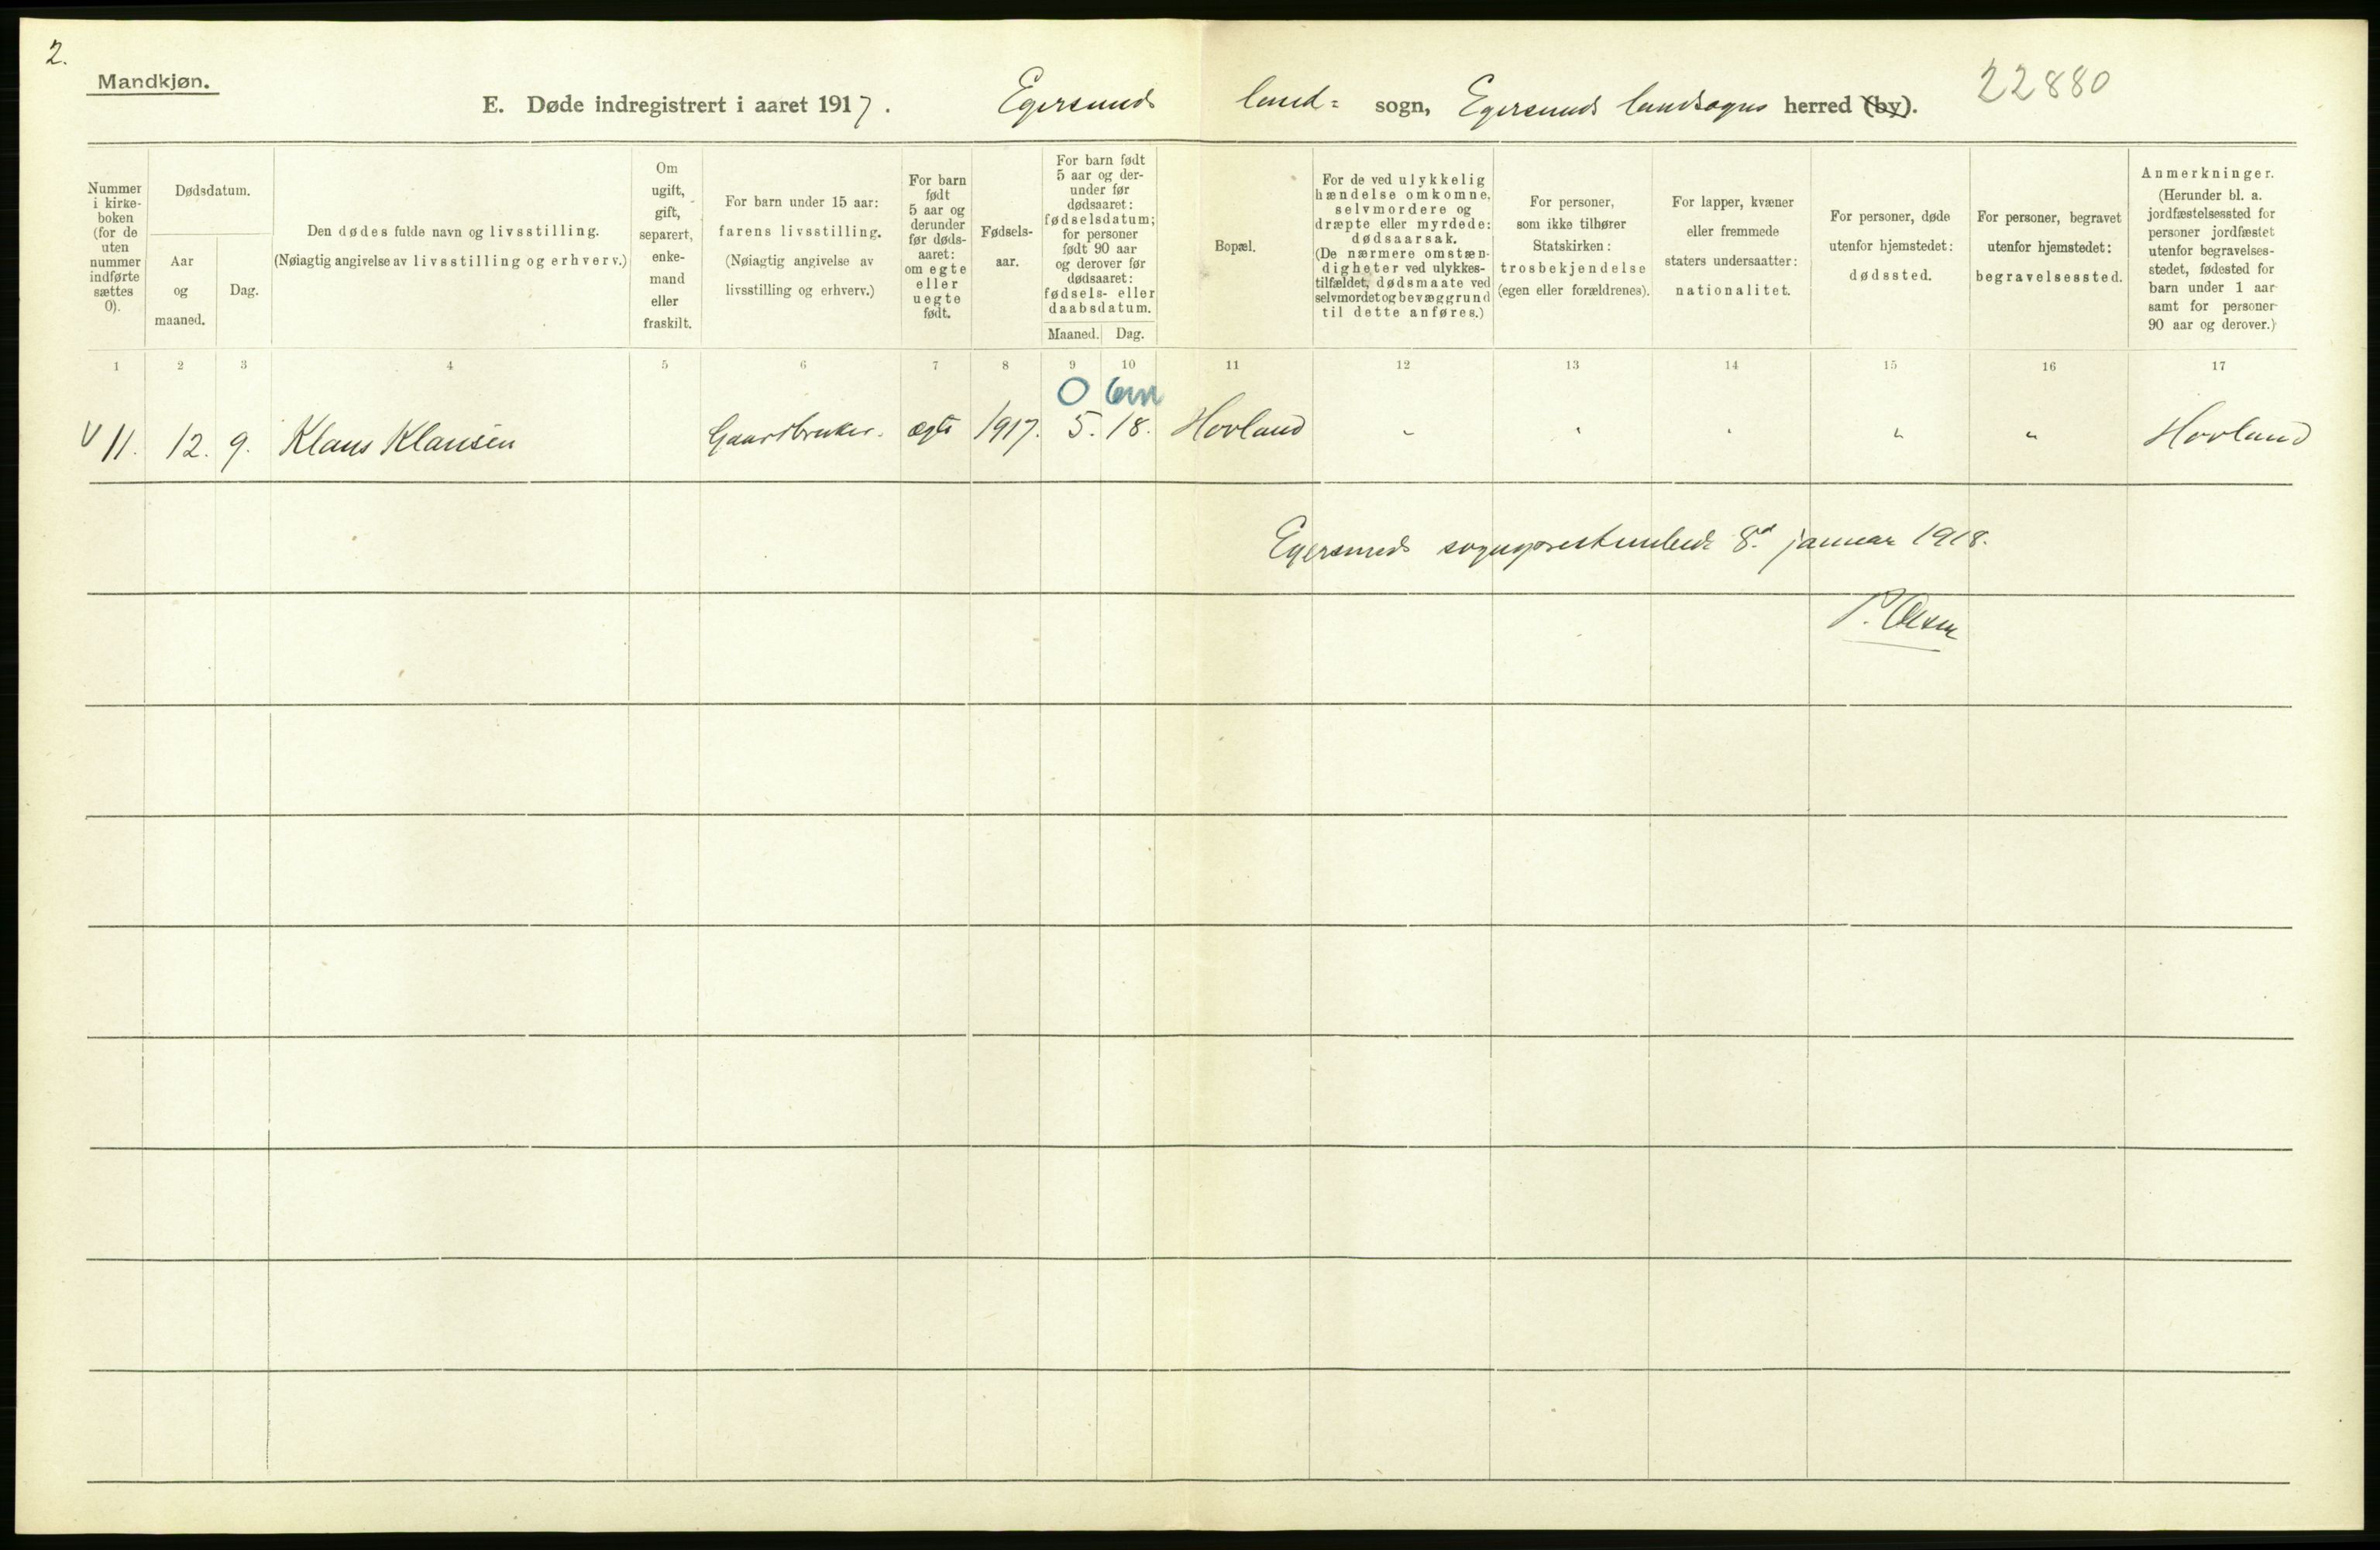 2.
Mandkjøn.
E. Døde indregistrert i aaret 1917. Egersunds land= sogn, Egersunds landsogns herred (by).
22880
Nummer i kirke-boken (for de uten nummer indførte sættes 0).
Dødsdatum.
Aar og maaned.
Dag.
Den dødes fulde navn og livsstilling.
(Nøiagtig angivelse av livsstilling og erhverv.)
Om ugift, gift, separert, enke-mand eller fraskilt.
For barn under 15 aar:
farens livsstilling.
(Nøiagtig angivelse av livsstilling og erhverv.)
For barn født 5 aar og derunder før døds-aaret: om egte eller uegte født.
Fødsels-aar.
For barn født 5 aar og der-under før dødsaaret: fødselsdatum; for personer født 90 aar og derover før dødsaaret: fødsels- eller daabsdatum.
Maaned. Dag.
Bopæl.
For de ved ulykkelig hændelse omkomne, selvmordere og dræpte eller myrdede: dødsaarsak.
(De nærmere omstæn-digheter ved ulykkes-tilfældet, dødsmaate ved selvmordet og bevæggrund til dette anføres.)
For personer, som ikke tilhører Statskirken: trosbekjendelse (egen eller forældrenes).
For lapper, kvæner eller fremmede staters undersaatter: nationalitet.
For personer, døde utenfor hjemstedet: dødssted.
For personer, begravet utenfor hjemstedet: begravelsessted.
Anmerkninger.
(Herunder bl. a. jordfæstelsessted for personer jordfæstet utenfor begravelses-stedet, fødested for barn under 1 aar samt for personer 90 aar og derover.)
1 2 3 4 5 6 7 8 9 10 11 12 13 14 15 16 17
0 6m
11. 12. 9. Klaus Klausen Gaardbruker. ægte 1917. 5. 18. Hovland " " " " " Hovland
Egersunds sogneprestembede 8d januar 1918.
P. Olsen